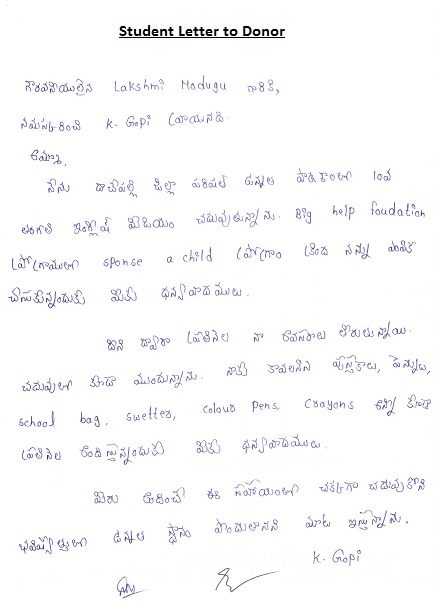 Student Letter to Donor
గౌరవనీయులైన Lakshmi Modugu గారికి,
నమస్కరించి K. Gopi వ్రాయునది
అమ్మా,
నేను దాచేపల్లి జిల్లా పరిషత్ ఉన్నత పాఠశాలలో 10వ
తరగతి ఇంగ్లీష్ మీడియం చదువుతున్నాను. Big help foudation
ప్రోగ్రాములో sponse a child ప్రోగ్రాం క్రింద నన్ను ఎంపిక
చేసుకున్నందుకు మీకు ధన్యవాదములు.
దీని ద్వారా ప్రతినెల నా అవసరాలు తీరుతున్నాయి.
చదువులో కూడా ముందున్నాను. నాకు కావలసిన పుస్తకాలు, పెన్నులు,
school bag, swetter, colour pens, crayons అన్ని కూడా
ప్రతినెల అందిస్తున్నందుకు మీకు ధన్యవాదములు.
మీరు అందించే ఈ సహాయంతో చక్కగా చదువుకొని
భవిష్యత్తులో ఉన్నత స్థానం పొందుతానని మాట ఇస్తున్నాను.
K. Gopi